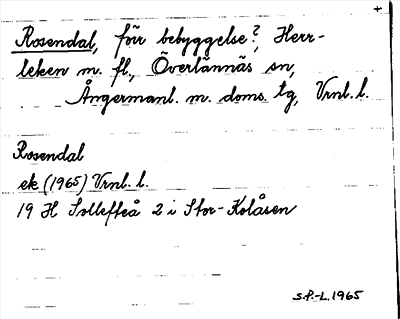 +
Rosendal, förr bebyggelse?, Herr-
leken m. fl., Överlännäs sn,
Ångermanl. m. doms. tg, Vrnl. l.
Rosendal
ek (1965) Vrnl. l.
19 H Sollefteå 2 i Stor-Kolåsen
S.P.-L. 1965